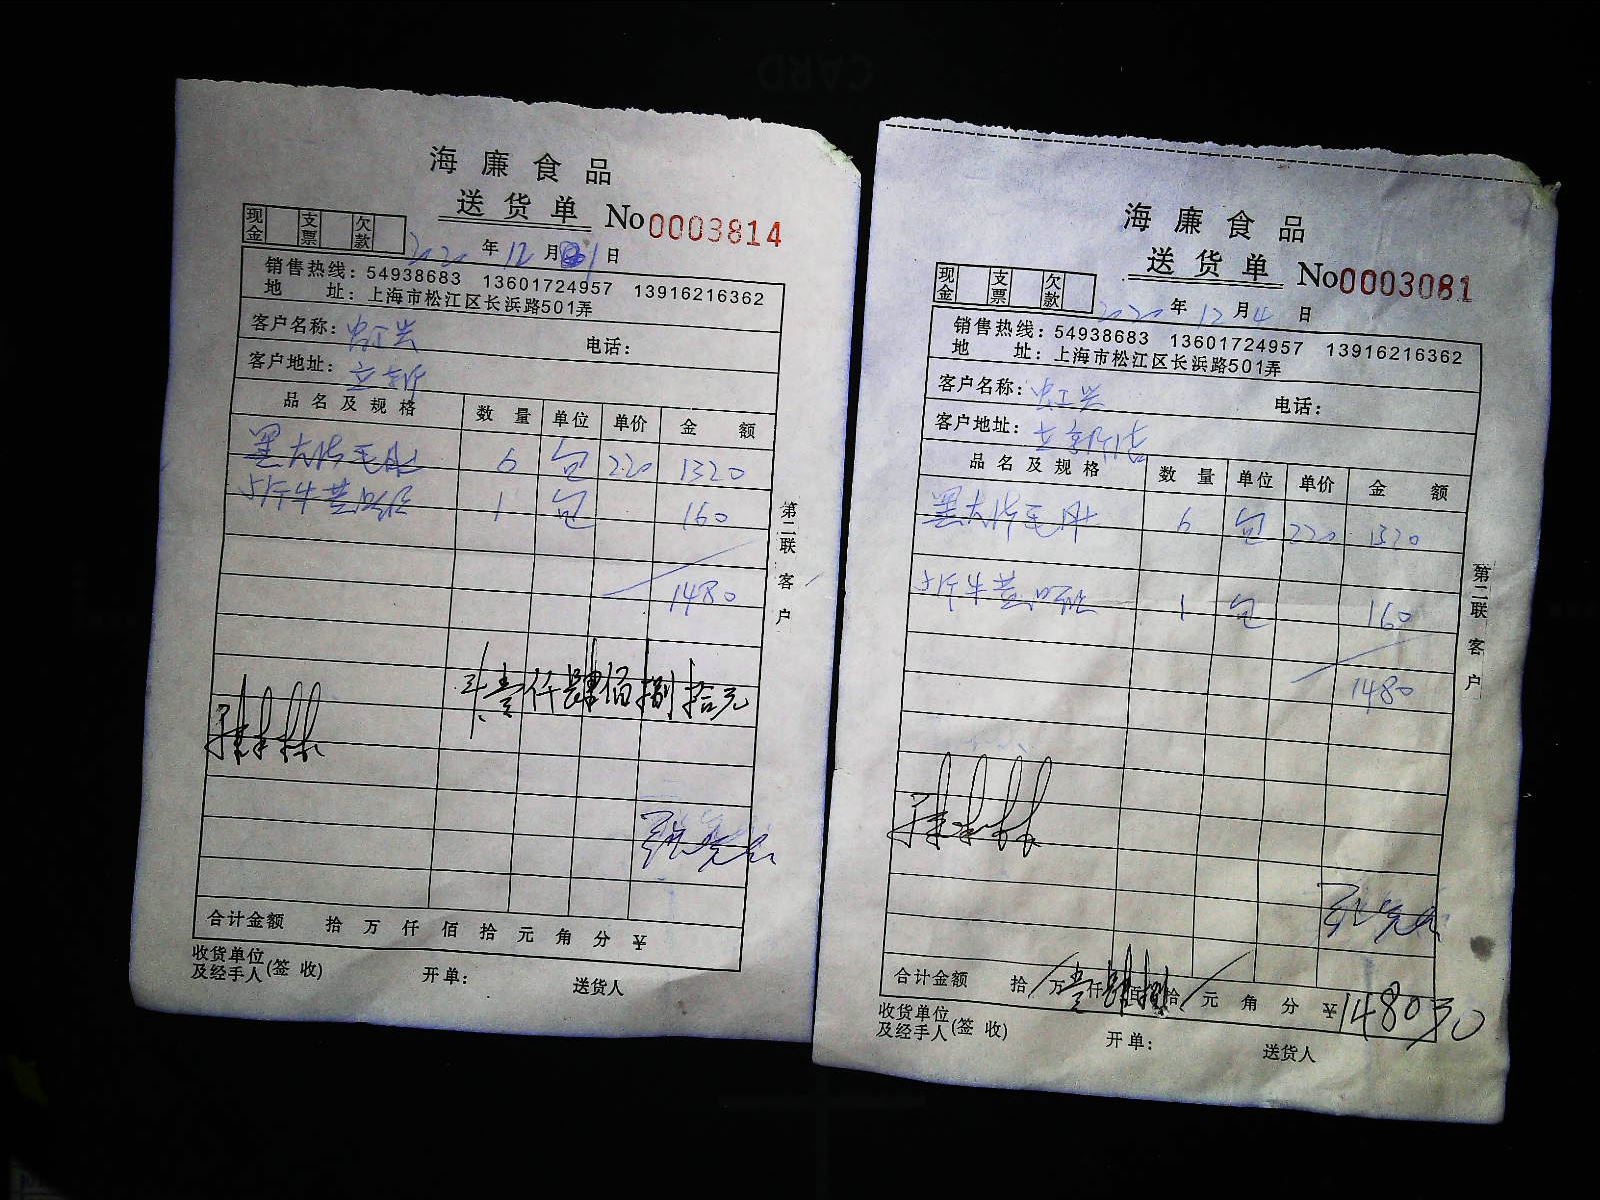 海廉食品
送货单 No0003814
现金 支票 欠款
2020年12月1日
销售热线：54938683 13601724957 13916216362
地 址：上海市松江区长浜路501弄
客户名称：
电话：
客户地址：
品名及规格 数量 单位 单价 金额
黑大片毛肚 6 包 220 1320
5斤牛黄喉 1 包 160
1480
壹仟肆佰捌拾元
第二联 客户
合计金额 拾 万 仟 佰 拾 元 角 分 ¥
收货单位及经手人(签 收)
开单：
送货人
CARD
海廉食品
送货单 No0003081
现金 支票 欠款
2020年12月4日
销售热线：54938683 13601724957 13916216362
地 址：上海市松江区长浜路501弄
客户名称：
电话：
客户地址：
品名及规格 数量 单位 单价 金额
黑大片毛肚 6 包 220 1320
5斤牛黄喉 1 包 160
1480
第二联 客户
合计金额 拾 万壹仟肆佰捌拾 元 角 分 ¥1480
收货单位及经手人(签 收)
开单：
送货人